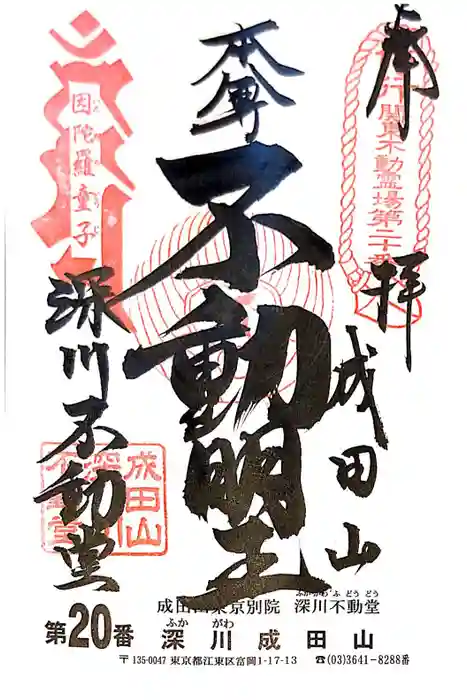 奉拝
成田山
行 関東不動霊場第二十番
本尊
不動明王
因陀羅童子
深川不動堂
成田山
深川
不動堂
成田山東京別院 深川不動堂
ふかがわ ふ どう どう
第20番 深川成田山
ふか がわ
〒135-0047 東京都江東区富岡1-17-13 ☎(03)3641-8288番